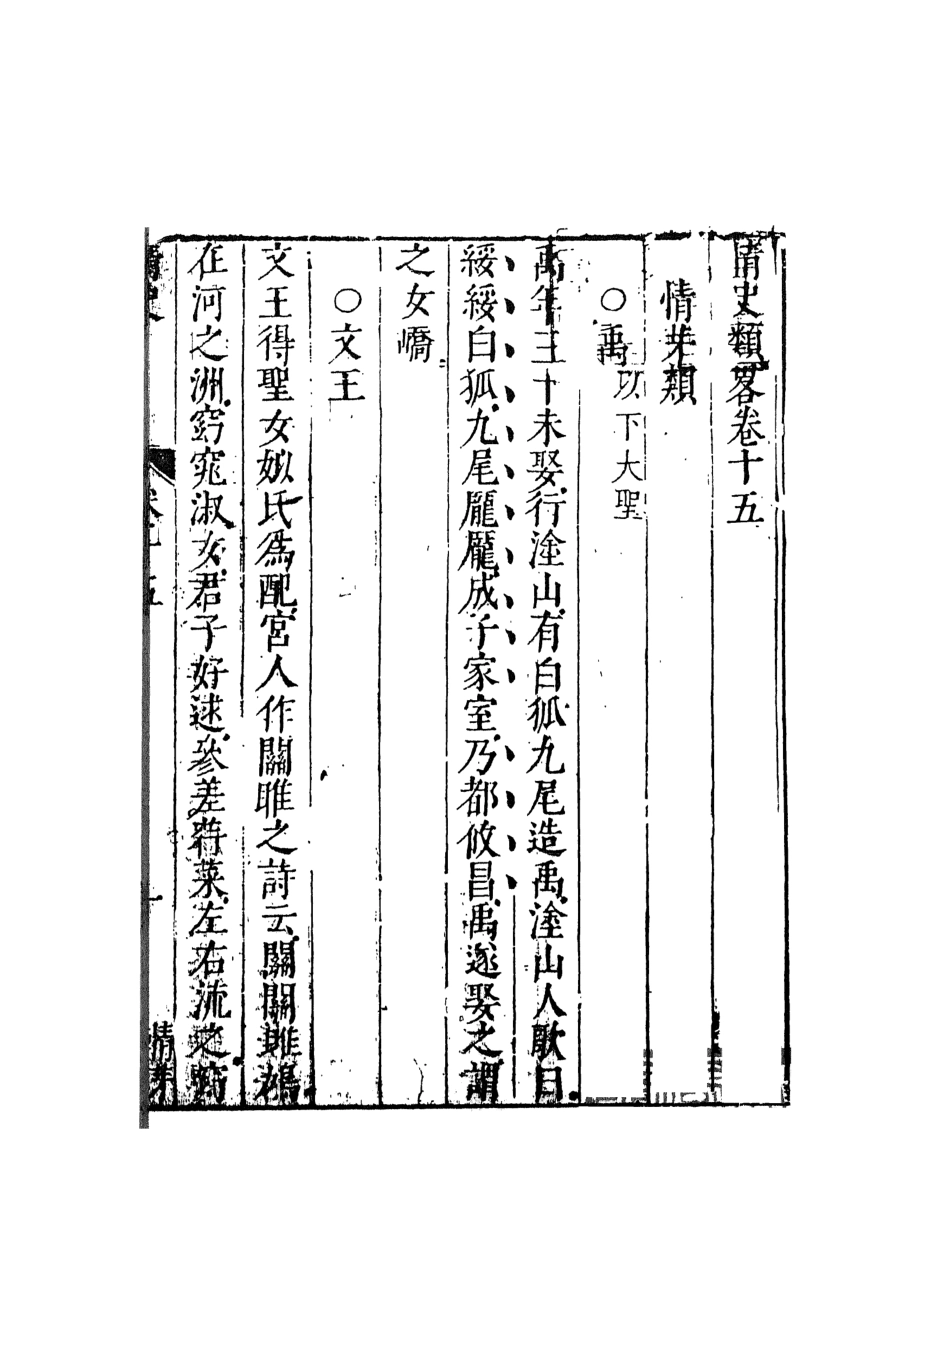 情史類畧卷十五
情芽類
○禹以下大聖
禹年三十未娶行塗山有白狐九尾造禹塗山人歌曰
綏綏白狐九尾龎龎成子家室乃都攸昌禹遂娶之謂
之女嬌
○文王
文王得聖女姒氏爲配宮人作關雎之詩云關關雎鳩
在河之洲窈窕淑女君子好逑參差荇菜左右流之窈
情史 卷十五 一 情芽